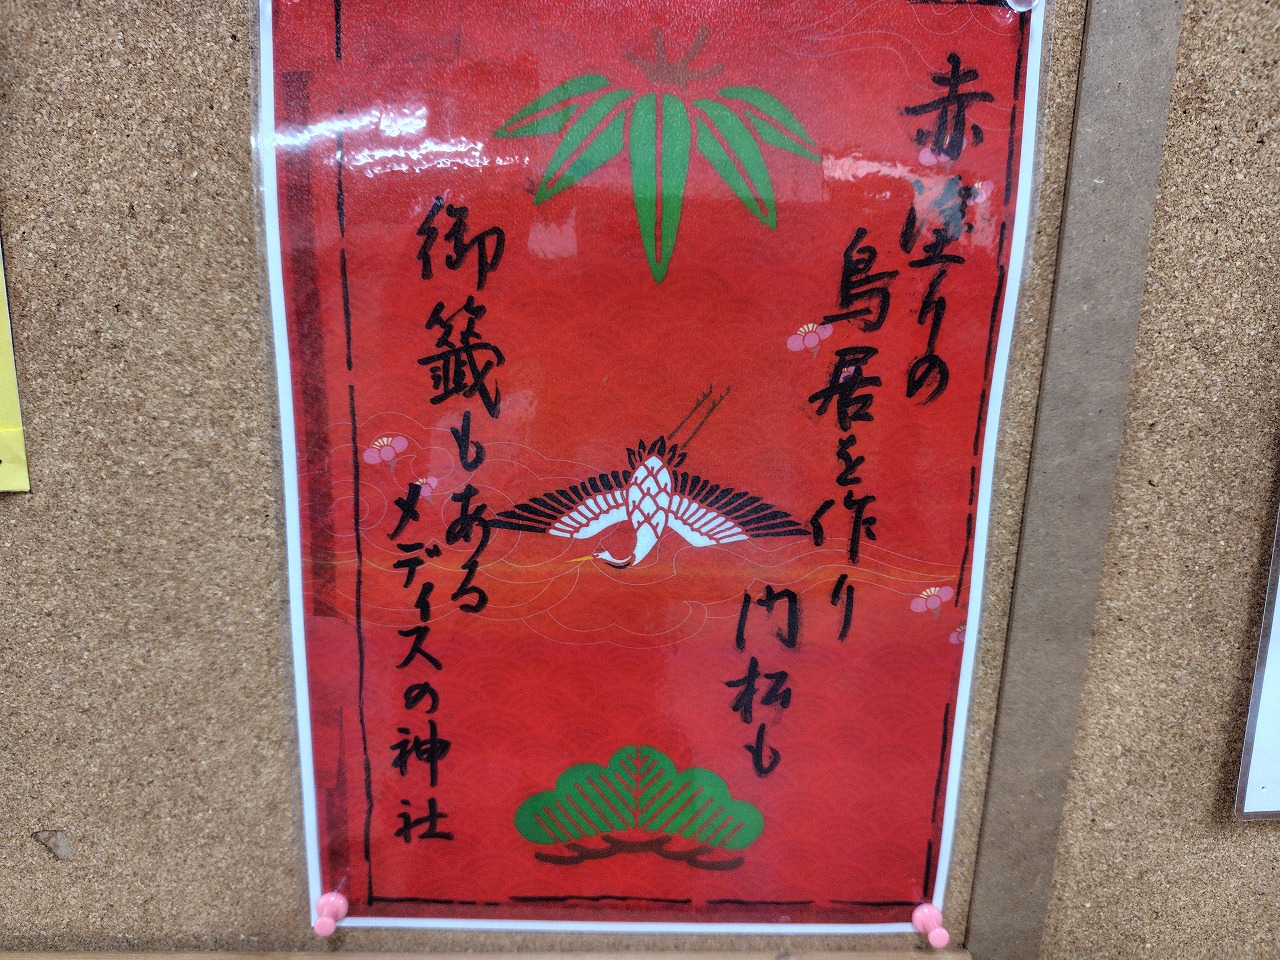 赤塗りの
鳥居を作り
門松も
御籤もある
メディスの神社